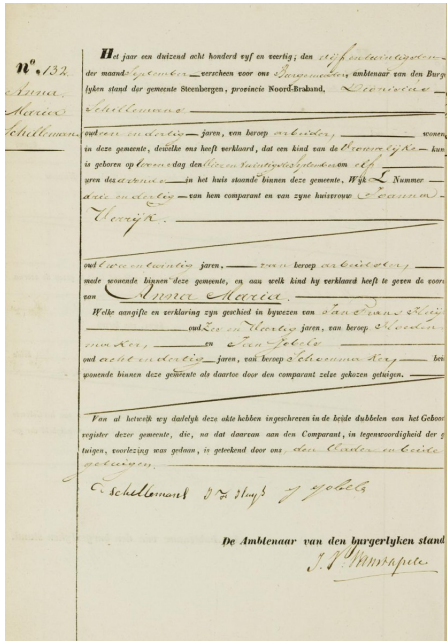 N°. 132.
Anna
Maria
Schellemans
Het jaar een duizend acht honderd vyf en veertig; den vijf en twintigsten
der maand September verscheen voor ons Burgemeester ambtenaar van den Burge
lyken stand der gemeente Steenbergen, provincie Noord-Braband,
Schellemans
oud een en dertig jaren, van beroep arbeider, wonen
in deze gemeente, dewelke ons heeft verklaard, dat een kind van de Vrouwelijke kun
is geboren op den September om elf
uren des avonds in het huis staande binnen deze gemeente, Wijk L Nummer
drie en dertig van hem comparant en van zyne huisvrouw Joanna
Verrijk.
oud twee en twintig jaren, van beroep arbeidster,
mede wonende binnen deze gemeente, en aan welk kind hy verklaard heeft te geven de voor
van Anna Maria.
Welke aangifte en verklaring zyn geschied in bywezen van Jan Frans Huij
oud Zes en Veertig jaren, van beroep Hoeden
maker, en Jan Gobels
oud acht en dertig jaren, van beroep Schoenmaker, bei
wonende binnen deze gemeente als daartoe door den comparant zelve gekozen getuigen.
Van al hetwelk wy dadelyk deze akte hebben ingeschreven in de beide dubbelen van het Geboor
register dezer gemeente, die, na dat daarvan aan den Comparant, in tegenwoordigheid der g
tuigen, voorlezing was gedaan, is geteekend door ons, den Vader en beide
getuigen.
Schellemans J F Huijs J Gobels
De Ambtenaar van den burgerlyken stand